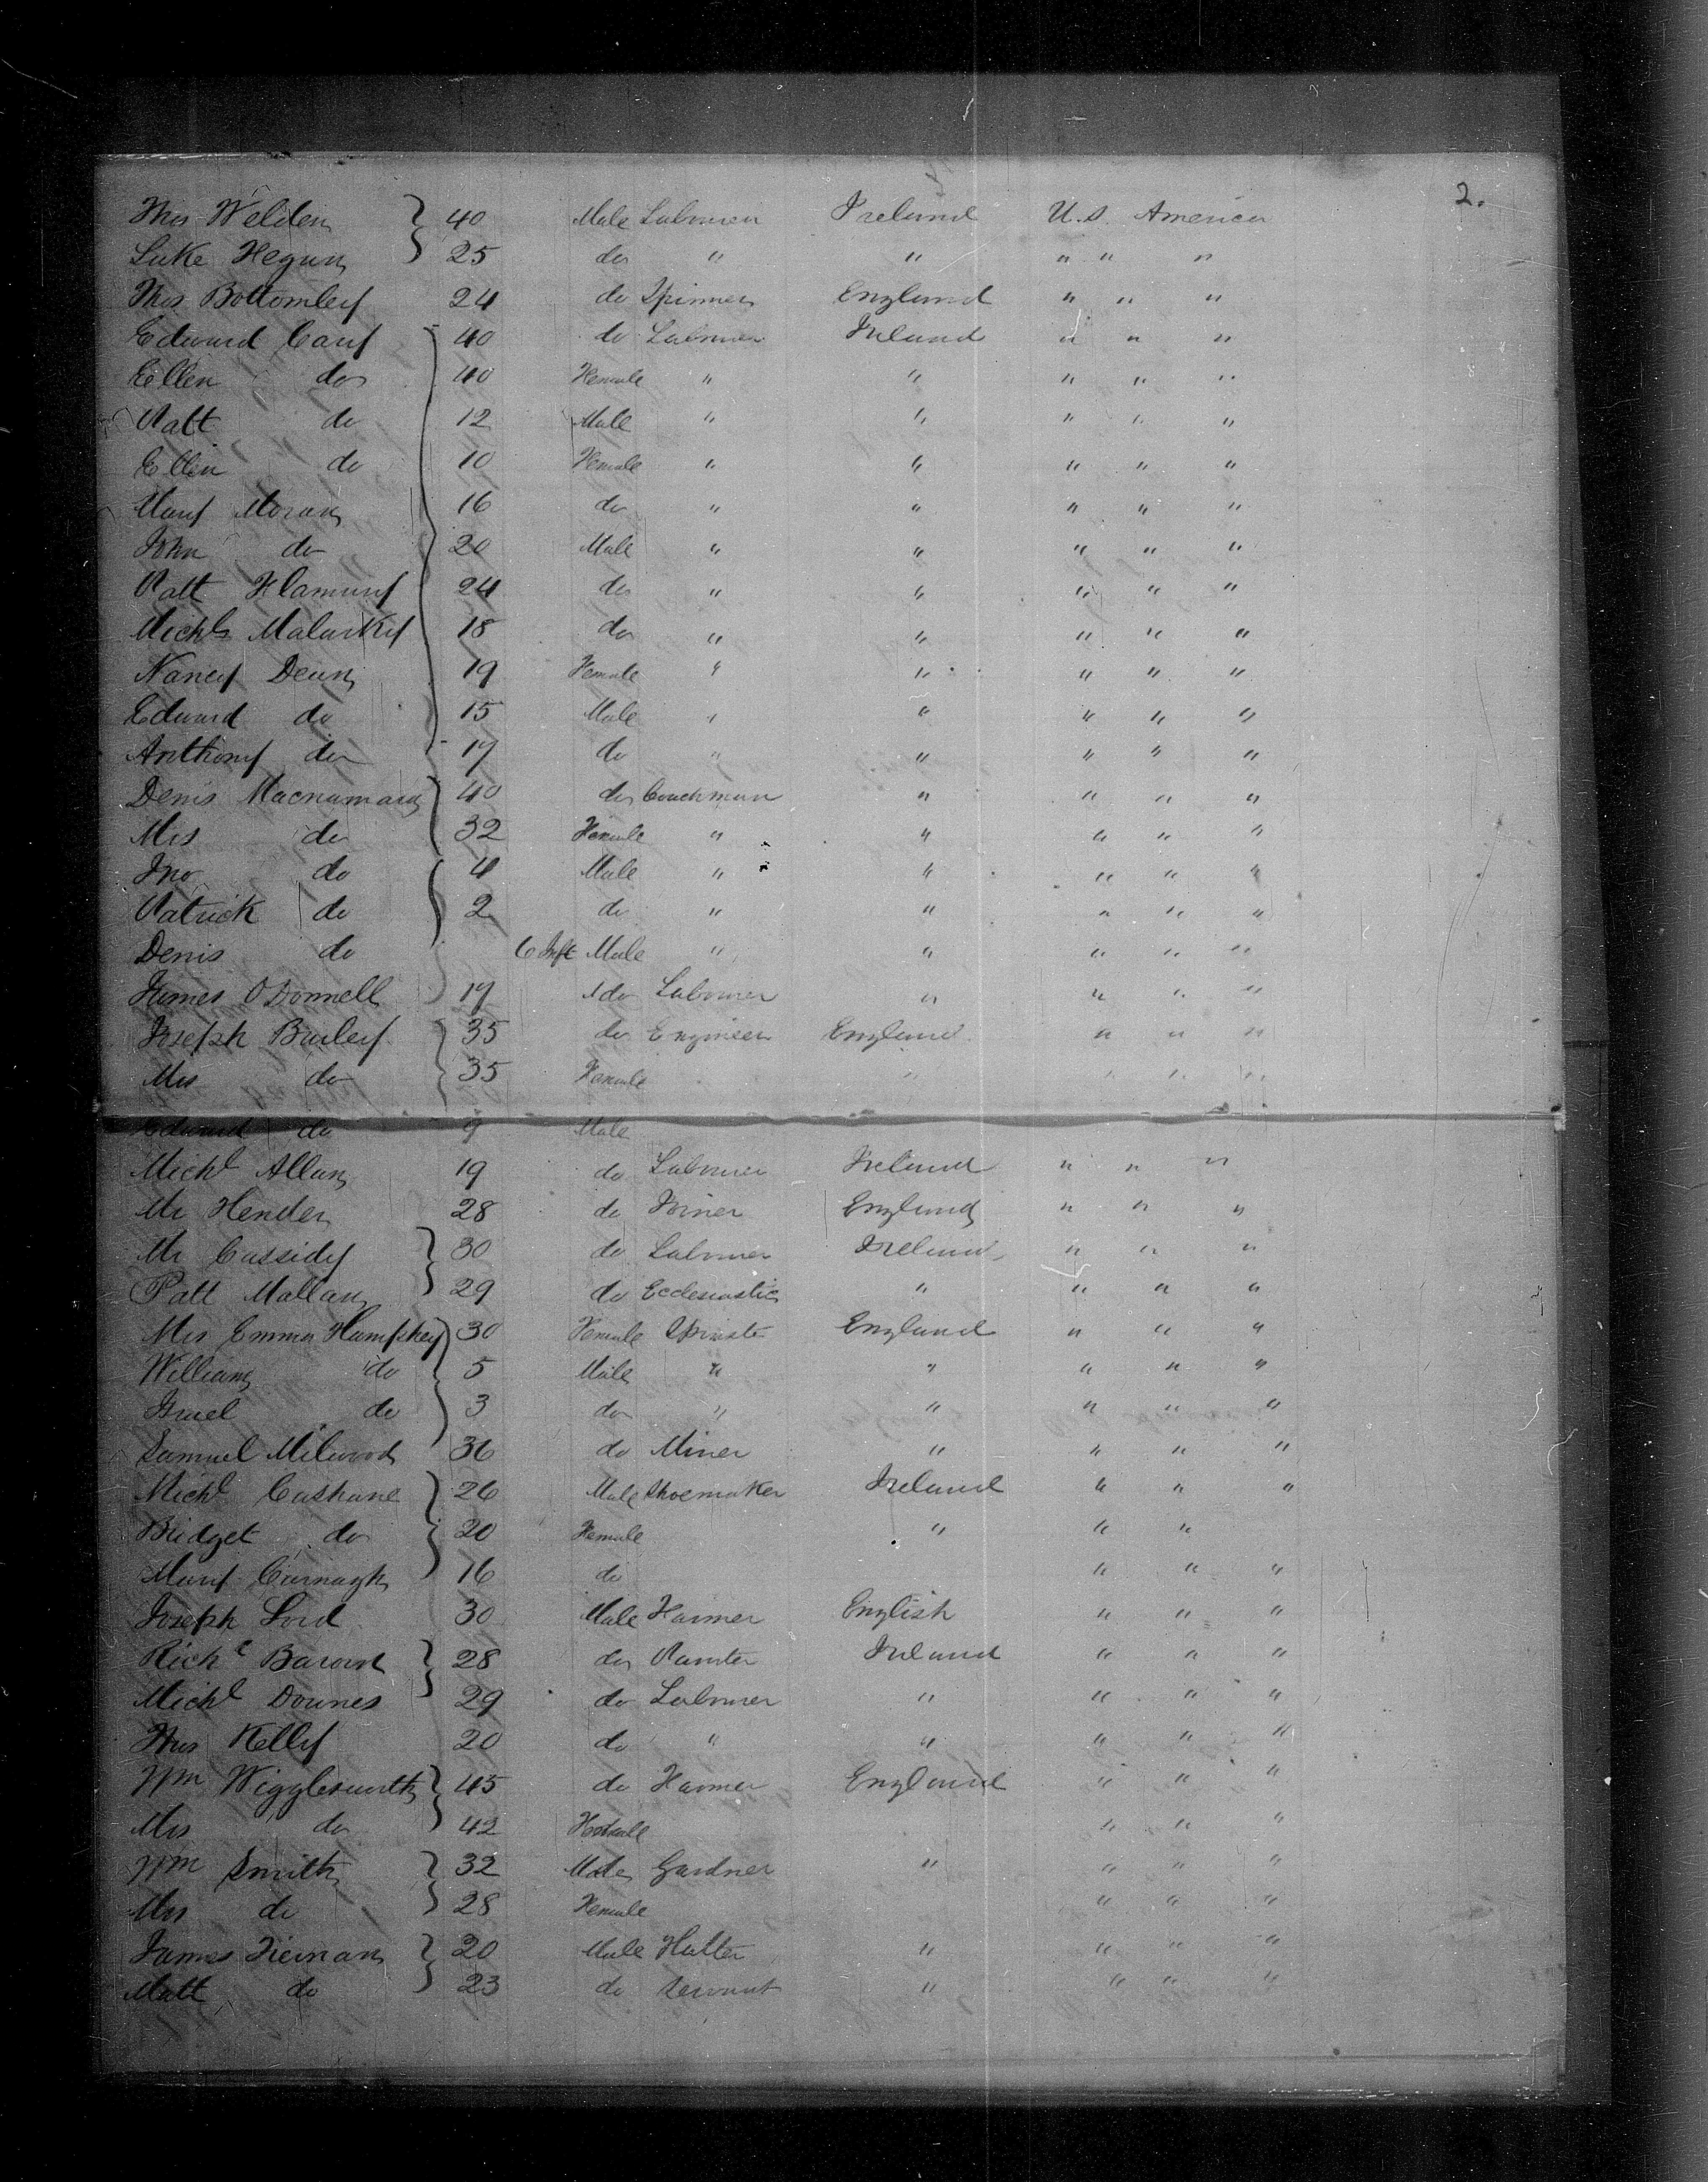 2.
Thos Welden 40 Male Labourer Ireland U.S. America
Luke Hegan 25 do " " " " "
Thos Bottomley 24 do Spinner England " " "
Edward Cary 40 do Labourer Ireland " " "
Ellen do 40 Female " " " " "
Patt do 12 Male " " " " "
Ellen do 10 Female " " " " "
Mary Moran 16 do " " " " "
John do 20 Male " " " " "
Patt Flannery 24 do " " " " "
Michl Malarkey 18 do " " " " "
Nancy Dean 19 Female " " " " "
Edward do 15 Male " " " " "
Anthony do 17 do " " " " "
Denis Macnamara 40 do Coachman " " " "
Mrs do 32 Female " " " " "
Jno do 4 Male " " " " "
Patrick do 2 do " " " " "
Denis do 6 Inft Male " " " " "
James O'Donnell 17 do Labourer " " " "
Joseph Burley 35 do Engineer England " " "
Mrs do 35 Female " " " "
Edward do 9 Male
Michl Allan 19 do Labourer Ireland " " "
Mr Hender 28 do Joiner England " " "
Mr Cassidy 30 do Labourer Ireland " " "
Patt Mallan 29 do Ecclesiastic " " " "
Mrs Emma Humphey 30 Female England " " "
William do 5 Male " " " " "
do 3 do " " " " "
Samuel Milwood 36 do Miner " " " "
Michl Cashane 26 Male Shoemaker Ireland " " "
Bridget do 20 Female " " "
Mary Carnagh 16 do " " "
Joseph Lord 30 Male Farmer English " " "
Richd 28 do Painter Ireland " " "
Michl Downes 29 do Labourer " " " "
Thos Kelly 20 do " " " " "
Wm Wigglesworth 45 do Farmer England " " "
Mrs do 42 Female " " "
Wm Smith 32 Male Gardner " " " "
Mrs do 28 Female " " "
James Tiernan 20 Male Hatter " " " "
Matt do 23 do Servant " " " "